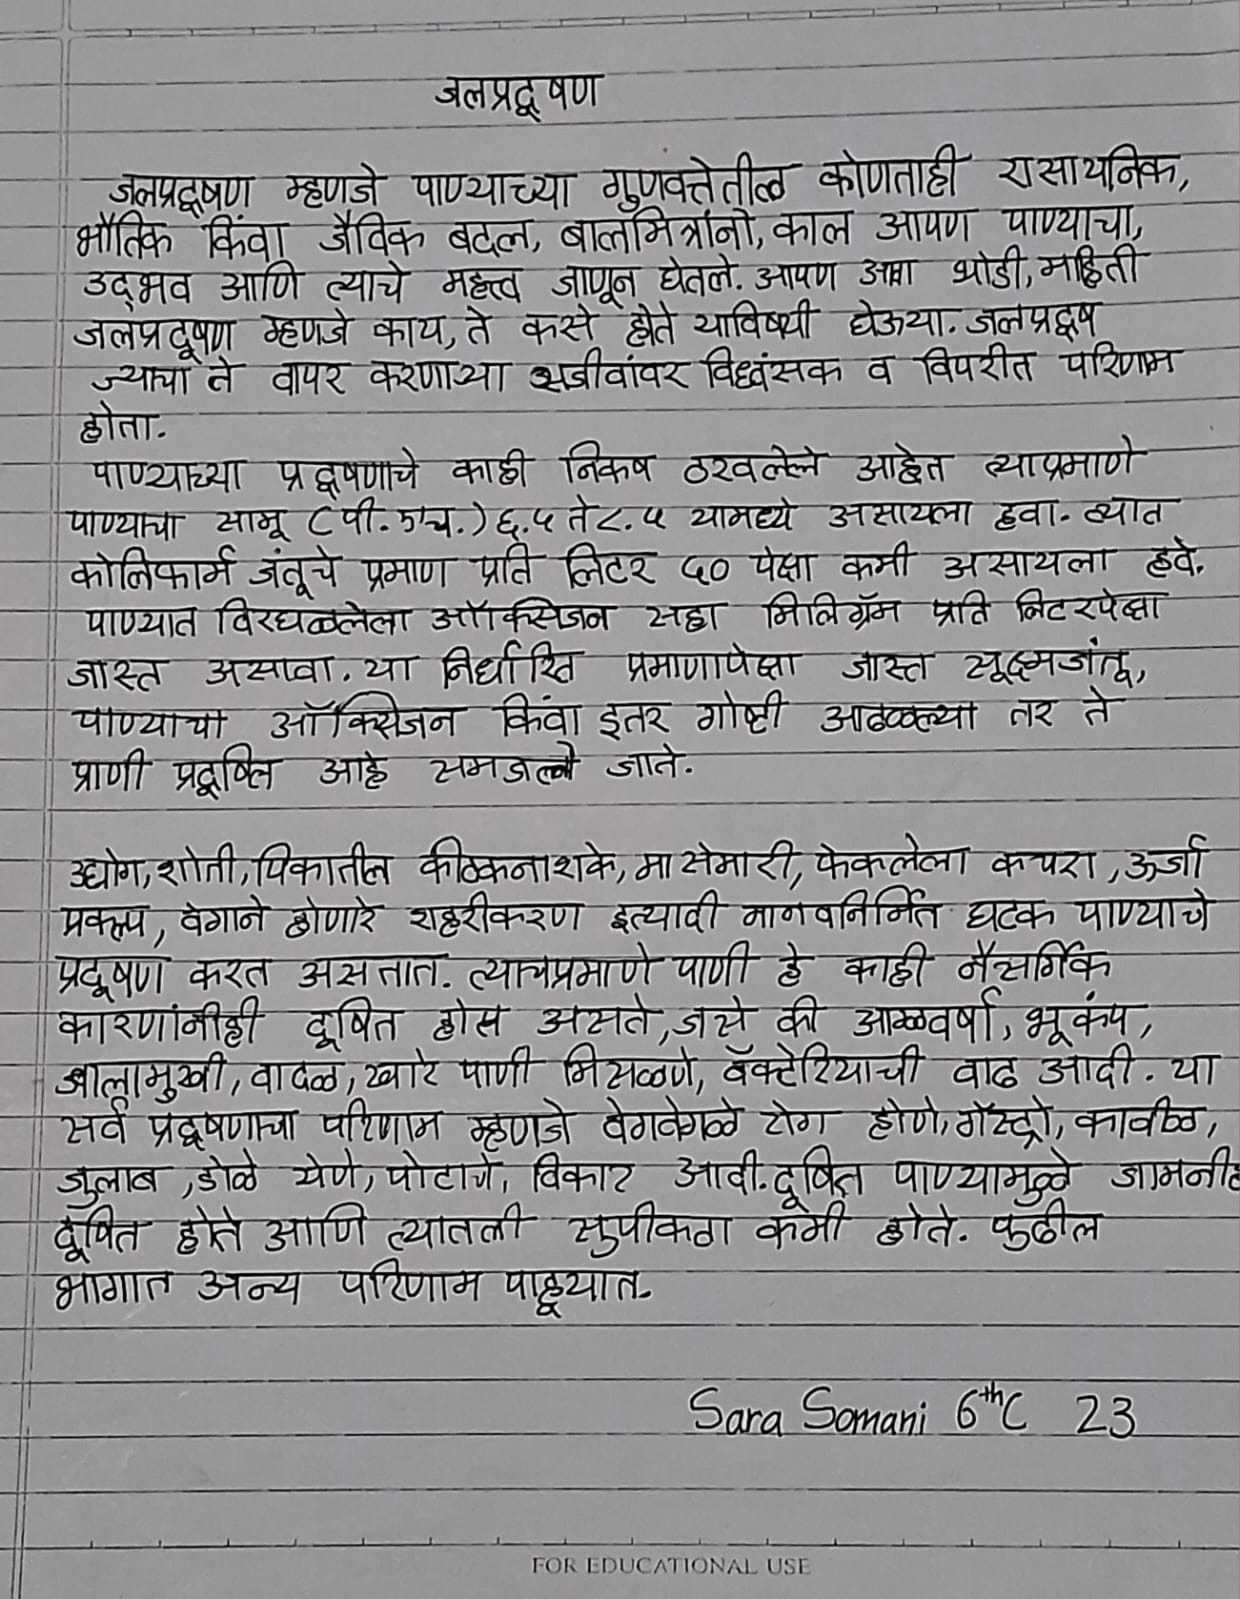 जलप्रदूषण
जलप्रदूषण म्हणजे पाण्याच्या गुणवत्तेतील कोणताही रासायनिक,
भौतिक किंवा जैविक बदल, बालमित्रांनो, काल आपण पाण्याचा,
उद्भव आणि त्याचे महत्त्व जाणून घेतले. आपण थोडी, माहिती
जलप्रदूषण म्हणजे काय, ते कसे होते याविषयी घेऊया. जलप्रदूष
ज्याचा ते वापर करणाऱ्या सजीवांवर विध्वंसक व विपरीत परिणाम
होता.
पाण्याच्या प्रदूषणाचे काही निकष ठरवलेले आहेत त्याप्रमाणे
पाण्याचा सामू (पी.एच.) ६.५ ते ८.५ यामध्ये असायला हवा. त्यात
कोलिफार्म जंतूचे प्रमाण प्रति लिटर ५० पेक्षा कमी असायला हवे.
पाण्यात विरघळलेला ऑक्सिजन सहा मिलिग्रॅम प्रति लिटरपेक्षा
जास्त असावा. या निर्धारित प्रमाणापेक्षा जास्त सूक्ष्मजंतू,
पाण्याचा ऑक्सिजन किंवा इतर गोष्टी आढळल्या तर ते
प्राणी प्रदूषित आहे समजले जाते.
उद्योग, शेती, पिकातील कीटकनाशके, मासेमारी, फेकलेला कचरा, ऊर्जा
प्रकल्प, वेगाने होणारे शहरीकरण इत्यादी मानवनिर्मित घटक पाण्याचे
प्रदूषण करत असतात. त्याचप्रमाणे पाणी हे काही नैसर्गिक
कारणांनीही दूषित होस असते, जसे की आळवर्षा, भूकंप,
ज्वालामुखी, वादळ, खारे पाणी मिसळणे, बॅक्टेरियाची वाढ आदी. या
सर्व प्रदूषणाचा परिणाम म्हणजे वेगवेगळे रोग होणे, गॅस्ट्रो, कावीळ,
जुलाब, डोळे येणे, पोटाचे, विकार आदी. दूषित पाण्यामुळे जामनीह
दूषित होते आणि त्यातली सुपीकता कमी होते. पुढील
भागात अन्य परिणाम पाहूयात.
Sara Somani 6th C 23
FOR EDUCATIONAL USE